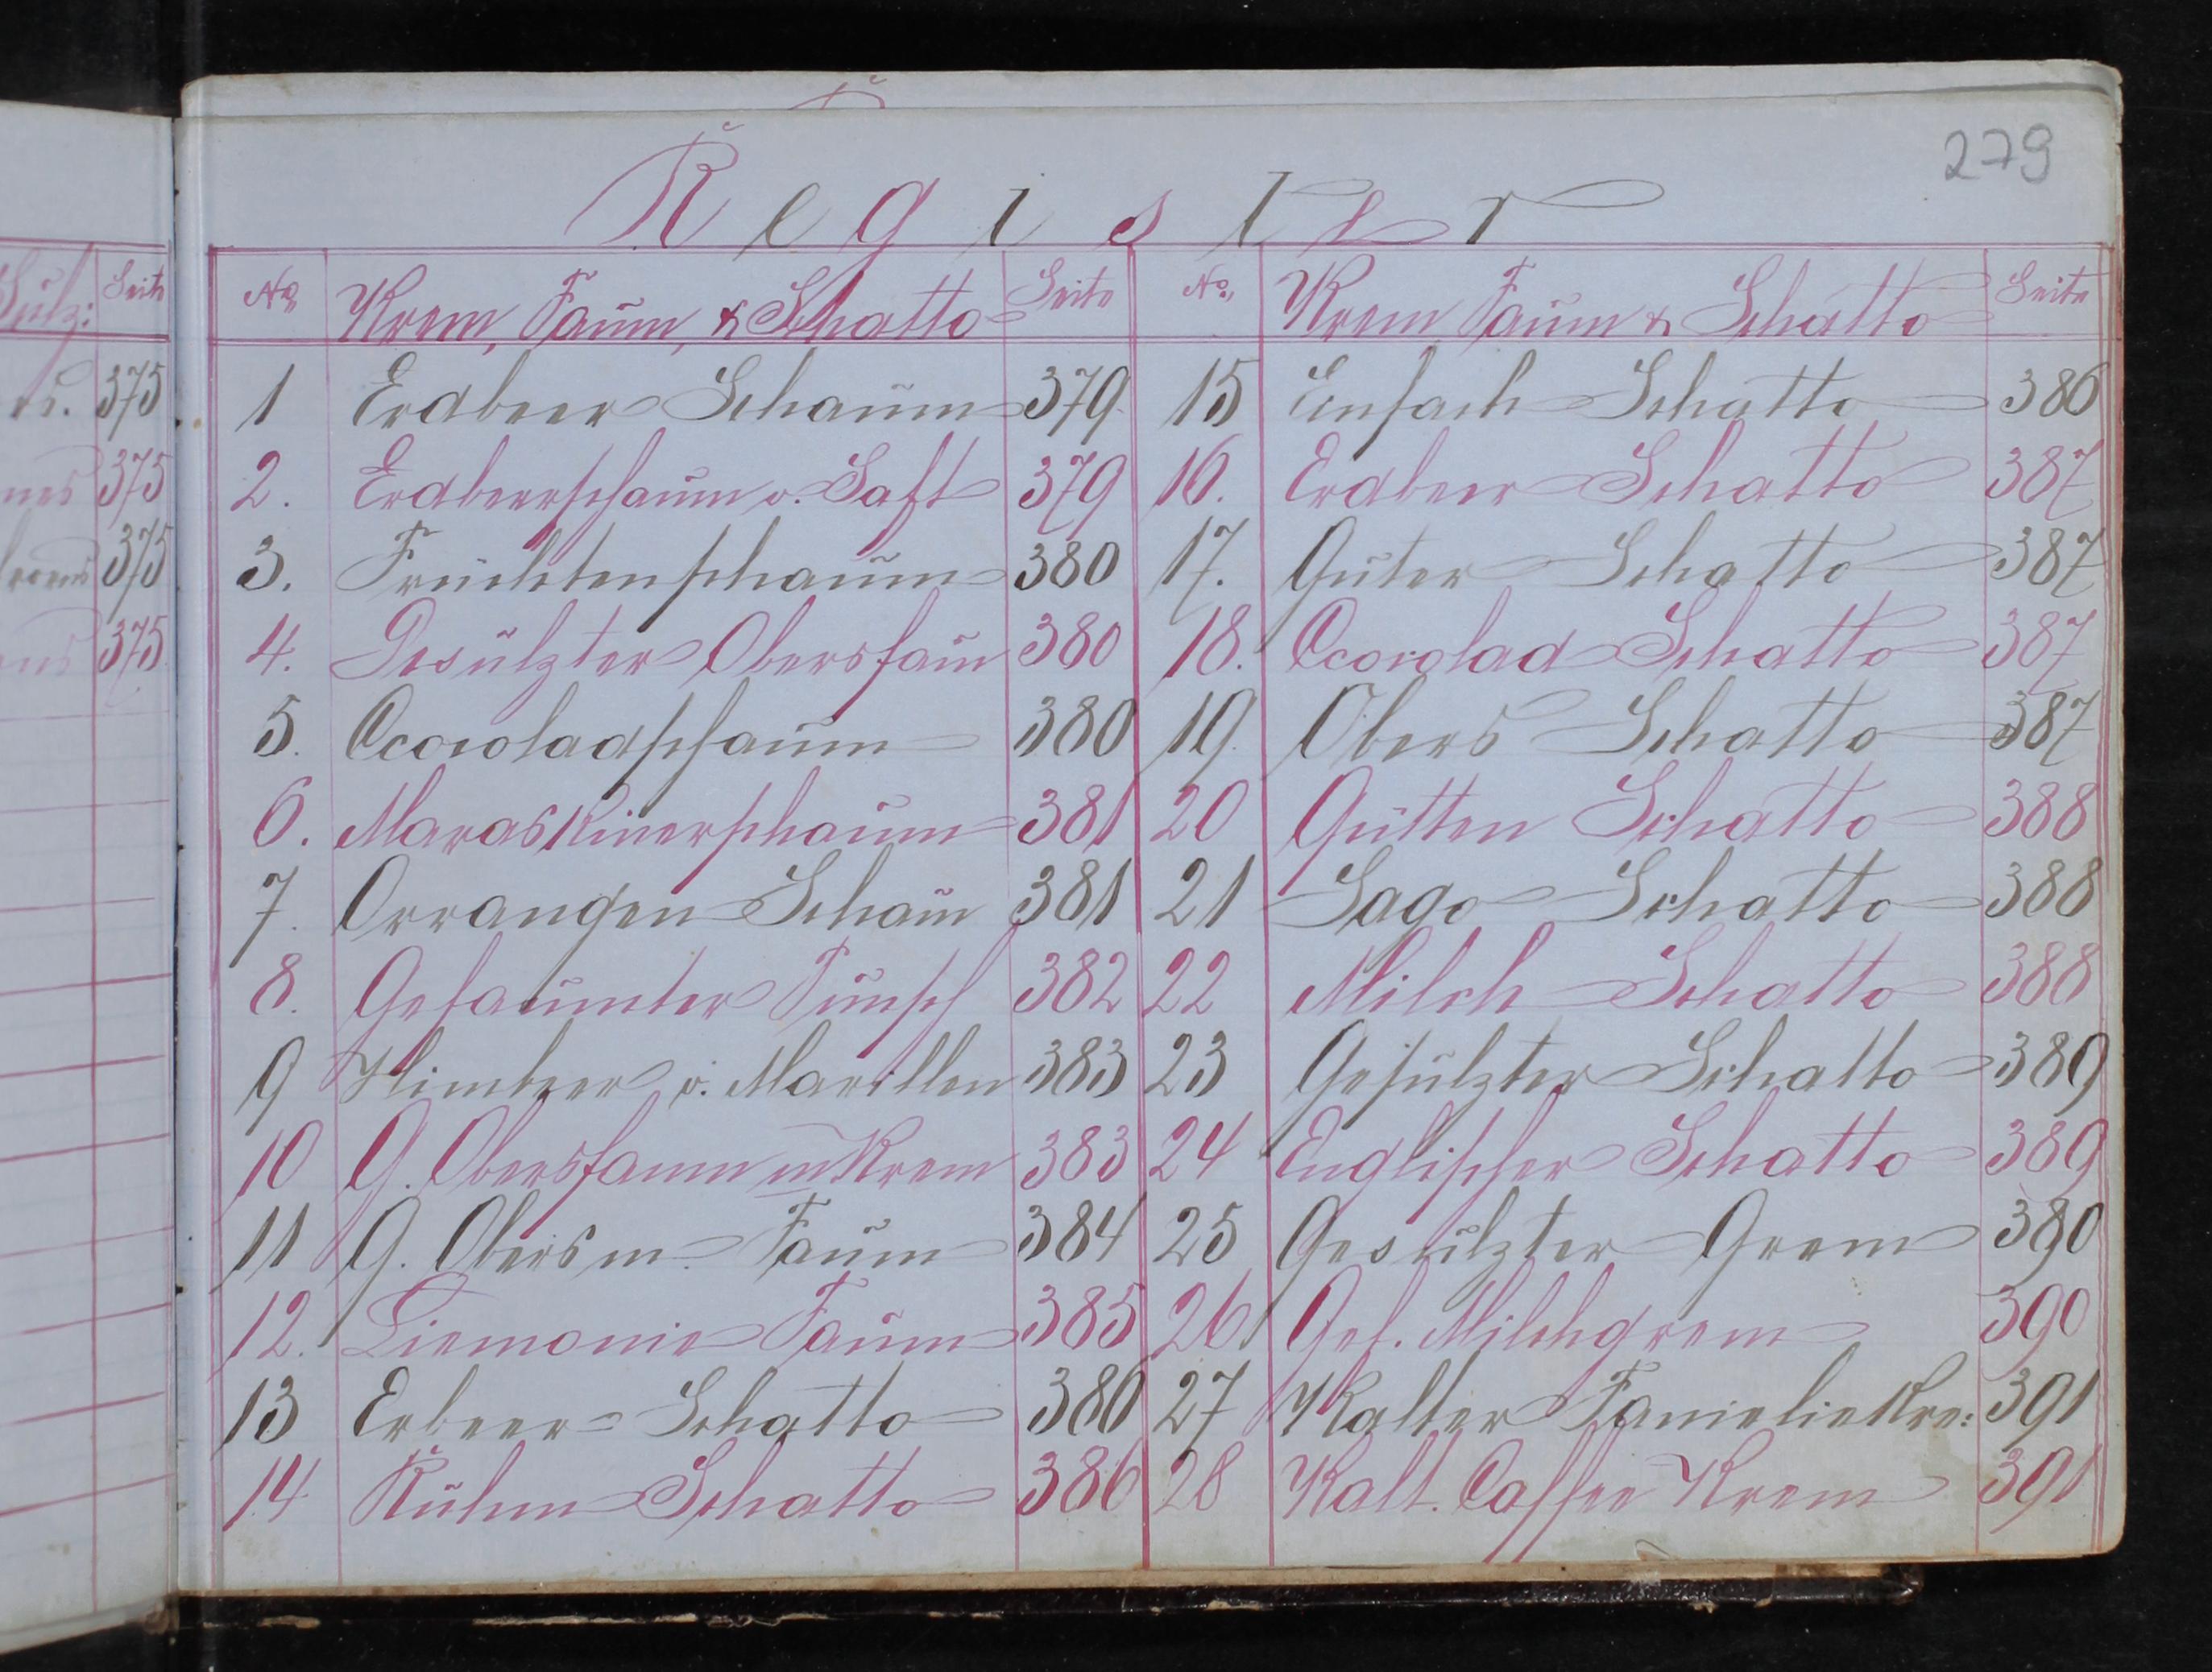 279
Register
Sulz: Seite
375
375
375
375
No Krem, Faum, & Schatto Seite
1 Erdbeer Schaum 379
2. Erdbeerschaum v. Saft 379
3. Früchtenschaum 380
4. Gesulzter Obersfaum 380
5. Ccocoladschaum 380
6. Maraskinerschaum 381
7. Orrangen Schaum 381
8. Gefaumter Punsch 382
9 Himbeer o. Marillen 383
10 G. Obersfaum m Krem 383
11 G. Obers m. Faum 384
12. Liemonie Faum 385
13 Erbeer= Schatto 386
14 Ruhm Schatto 386
No. Krem Faum & Schatto Seite
15 Einfach Schatto 386
16. Erdbeer Schatto 387
17. Guter Schatto 387
18. Ccocolad Schatto 387
19. Obers Schatto 387
20 Gutten Schatto 388
21 Sago Schatto 388
22 Milch Schatto 388
23 Gesulzter Schatto 389
24 Englischer Schatto 389
25 Gesulzter Grem 390
26 Ges. Milchgrem 390
27 Kalter Fanielie Kre: 391
28 Kalt. Caffee Krem 391